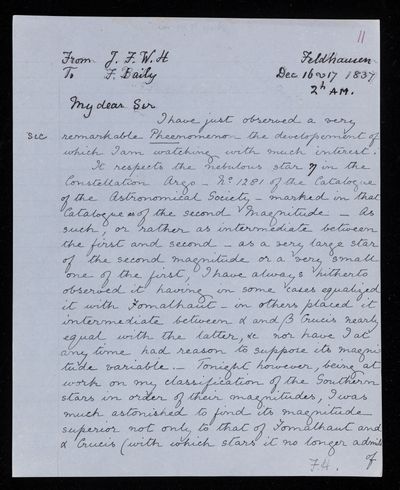 11
From J. F. W. H Feldhausen
To F. Baily Dec 16 & 17 1837
2h AM.
My dear Sir
I have just observed a very
Sic remarkable Pheenomenon the developement of
which I am watching with much interest.
It respects the nebulous star η in the
Constellation Argo – No 1281 of the Catalogue
of the Astronomical Society – marked in that
Catalogue as of the second Magnitude – As
such, or rather as intermediate between
the first and second – as a very large star
of the second magnitude or a very small
one of the first, I have always hitherto
observed it having in some cases equalized
it with Fomalhaut – in others placed it
intermediate between α and β Crucis nearly
equal with the latter, &c nor have I at
any time had reason to suppose its magni
tude variable. – Tonight however, being at
work on my classification of the Southern
stars in order of their magnitudes, I was
much astonished to find its magnitude
superior not only to that of Fomalhaut and
α Crucis (with which stars it no longer admits
of
F4.